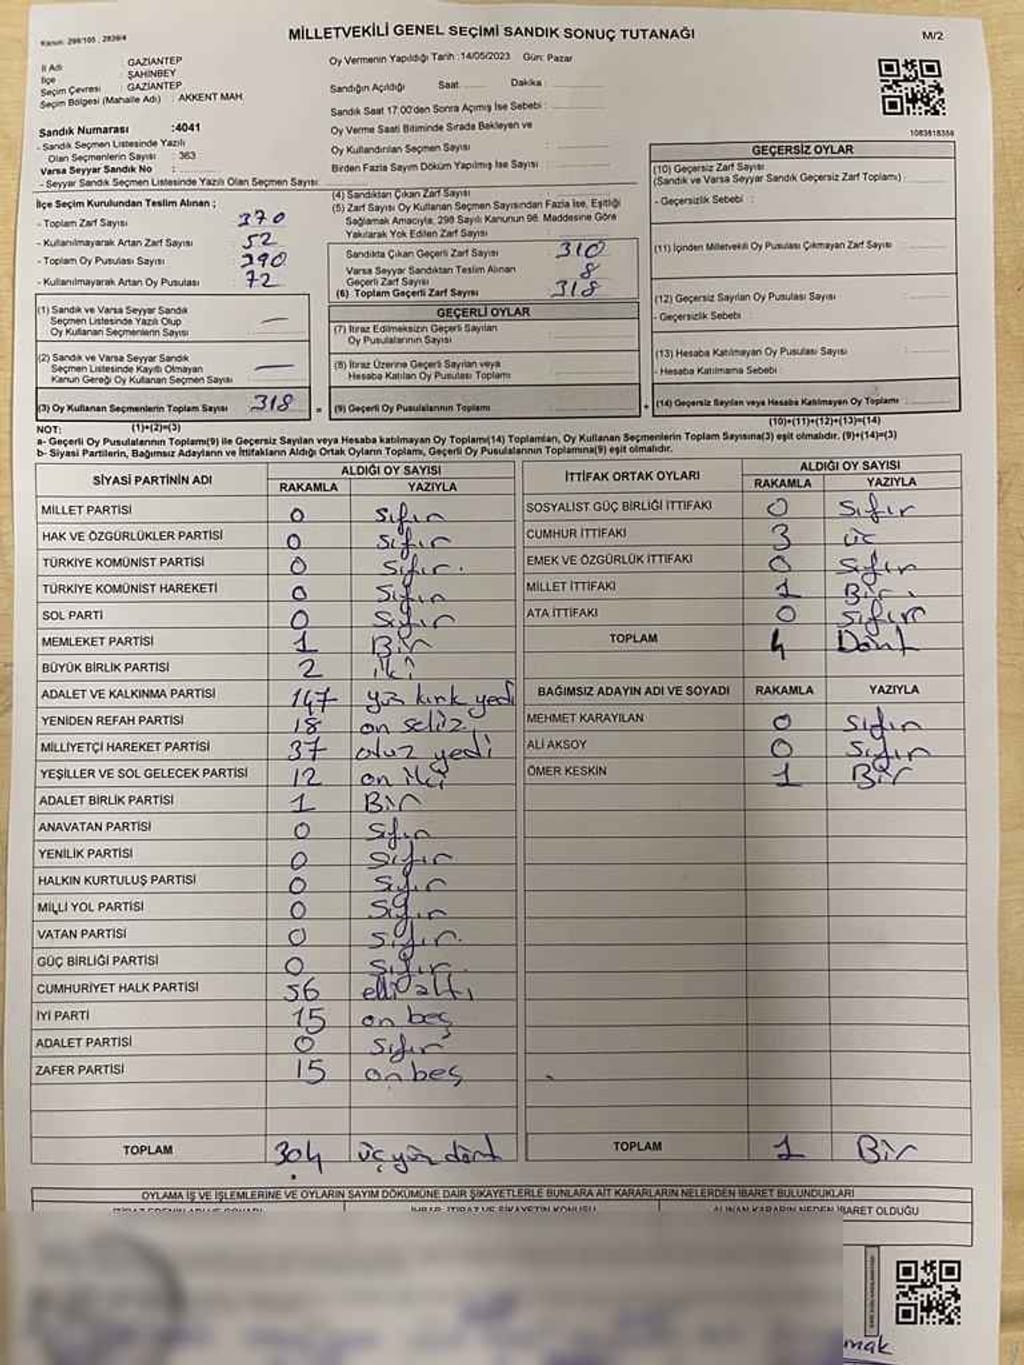 Kanun: 298/105, 2839/4
MİLLETVEKİLİ GENEL SEÇİMİ SANDIK SONUÇ TUTANAĞI
M/2
İl Adı : GAZİANTEP
İlçe : ŞAHİNBEY
Seçim Çevresi : GAZİANTEP
Seçim Bölgesi (Mahalle Adı) : AKKENT MAH.
Sandık Numarası :4041
- Sandık Seçmen Listesinde Yazılı
Olan Seçmenlerin Sayısı : 363
Varsa Seyyar Sandık No :
- Seyyar Sandık Seçmen Listesinde Yazılı Olan Seçmen Sayısı:
İlçe Seçim Kurulundan Teslim Alınan ;
- Toplam Zarf Sayısı 370
- Kullanılmayarak Artan Zarf Sayısı 52
- Toplam Oy Pusulası Sayısı 390
- Kullanılmayarak Artan Oy Pusulası 72
(1) Sandık ve Varsa Seyyar Sandık
Seçmen Listesinde Yazılı Olup
Oy Kullanan Seçmenlerin Sayısı —
(2) Sandık ve Varsa Seyyar Sandık
Seçmen Listesinde Kayıtlı Olmayan
Kanun Gereği Oy Kullanan Seçmen Sayısı —
(3) Oy Kullanan Seçmenlerin Toplam Sayısı 318
Oy Vermenin Yapıldığı Tarih :14/05/2023 Gün: Pazar
Sandığın Açıldığı Saat Dakika :
Sandık Saat 17:00'den Sonra Açımış İse Sebebi :
Oy Verme Saati Bitiminde Sırada Bekleyen ve
Oy Kullandırılan Seçmen Sayısı :
Birden Fazla Sayım Döküm Yapılmış İse Sayısı :
(4) Sandıktan Çıkan Zarf Sayısı :
(5) Zarf Sayısı Oy Kullanan Seçmen Sayısından Fazla İse, Eşitliği
Sağlamak Amacıyla, 298 Sayılı Kanunun 98. Maddesine Göre
Yakılarak Yok Edilen Zarf Sayısı :
Sandıkta Çıkan Geçerli Zarf Sayısı 310
Varsa Seyyar Sandıktan Teslim Alınan
Geçerli Zarf Sayısı 8
(6) Toplam Geçerli Zarf Sayısı 318
GEÇERLİ OYLAR
(7) İtiraz Edilmeksizin Geçerli Sayılan
Oy Pusulalarının Sayısı :
(8) İtiraz Üzerine Geçerli Sayılan veya
Hesaba Katılan Oy Pusulası Toplamı :
= (9) Geçerli Oy Pusulalarının Toplamı :
1083618356
GEÇERSİZ OYLAR
(10) Geçersiz Zarf Sayısı
(Sandık ve Varsa Seyyar Sandık Geçersiz Zarf Toplamı) :
- Geçersizlik Sebebi :
(11) İçinden Milletvekili Oy Pusulası Çıkmayan Zarf Sayısı
(12) Geçersiz Sayılan Oy Pusulası Sayısı :
- Geçersizlik Sebebi :
(13) Hesaba Katılmayan Oy Pusulası Sayısı :
- Hesaba Katılmama Sebebi :
+ (14) Geçersiz Sayılan veya Hesaba Katılmayan Oy Toplamı :
NOT: (1)+(2)=(3)
(10)+(11)+(12)+(13)=(14)
a- Geçerli Oy Pusulalarının Toplamı(9) ile Geçersiz Sayılan veya Hesaba katılmayan Oy Toplamı(14) Toplamları, Oy Kullanan Seçmenlerin Toplam Sayısına(3) eşit olmalıdır. (9)+(14)=(3)
b- Siyasi Partilerin, Bağımsız Adayların ve İttifakların Aldığı Ortak Oyların Toplamı, Geçerli Oy Pusulalarının Toplamına(9) eşit olmalıdır.
SİYASİ PARTİNİN ADI ALDIĞI OY SAYISI
RAKAMLA YAZIYLA
MİLLET PARTİSİ 0 Sıfır
HAK VE ÖZGÜRLÜKLER PARTİSİ 0 Sıfır
TÜRKİYE KOMÜNİST PARTİSİ 0 Sıfır.
TÜRKİYE KOMÜNİST HAREKETİ 0 Sıfır
SOL PARTİ 0 Sıfır
MEMLEKET PARTİSİ 1 Bir
BÜYÜK BİRLİK PARTİSİ 2 iki
ADALET VE KALKINMA PARTİSİ 147 yüz kırk yedi
YENİDEN REFAH PARTİSİ 18 on sekiz
MİLLİYETÇİ HAREKET PARTİSİ 37 otuz yedi
YEŞİLLER VE SOL GELECEK PARTİSİ 12 on iki
ADALET BİRLİK PARTİSİ 1 Bir
ANAVATAN PARTİSİ 0 Sıfır
YENİLİK PARTİSİ 0 Sıfır
HALKIN KURTULUŞ PARTİSİ 0 Sıfır
MİLLİ YOL PARTİSİ 0 Sıfır
VATAN PARTİSİ 0 Sıfır.
GÜÇ BİRLİĞİ PARTİSİ 0 Sıfır
CUMHURİYET HALK PARTİSİ 56 elli altı
İYİ PARTİ 15 on beş
ADALET PARTİSİ 0 Sıfır
ZAFER PARTİSİ 15 on beş
TOPLAM 304 üç yüz dört
İTTİFAK ORTAK OYLARI ALDIĞI OY SAYISI
RAKAMLA YAZIYLA
SOSYALİST GÜÇ BİRLİĞİ İTTİFAKI 0 Sıfır
CUMHUR İTTİFAKI 3 üç
EMEK VE ÖZGÜRLÜK İTTİFAKI 0 Sıfır
MİLLET İTTİFAKI 1 Bir.
ATA İTTİFAKI 0 Sıfır
TOPLAM 4 Dört
BAĞIMSIZ ADAYIN ADI VE SOYADI RAKAMLA YAZIYLA
MEHMET KARAYILAN 0 Sıfır
ALİ AKSOY 0 Sıfır
ÖMER KESKİN 1 Bir
TOPLAM 1 Bir
OYLAMA İŞ VE İŞLEMLERİNE VE OYLARIN SAYIM DÖKÜMÜNE DAİR ŞİKAYETLERLE BUNLARA AİT KARARLARIN NELERDEN İBARET BULUNDUKLARI
İHBAR, İTİRAZ VE ŞİKAYETİN KONUSU
ALINAN KARARIN NEDEN İBARET OLDUĞU
mak